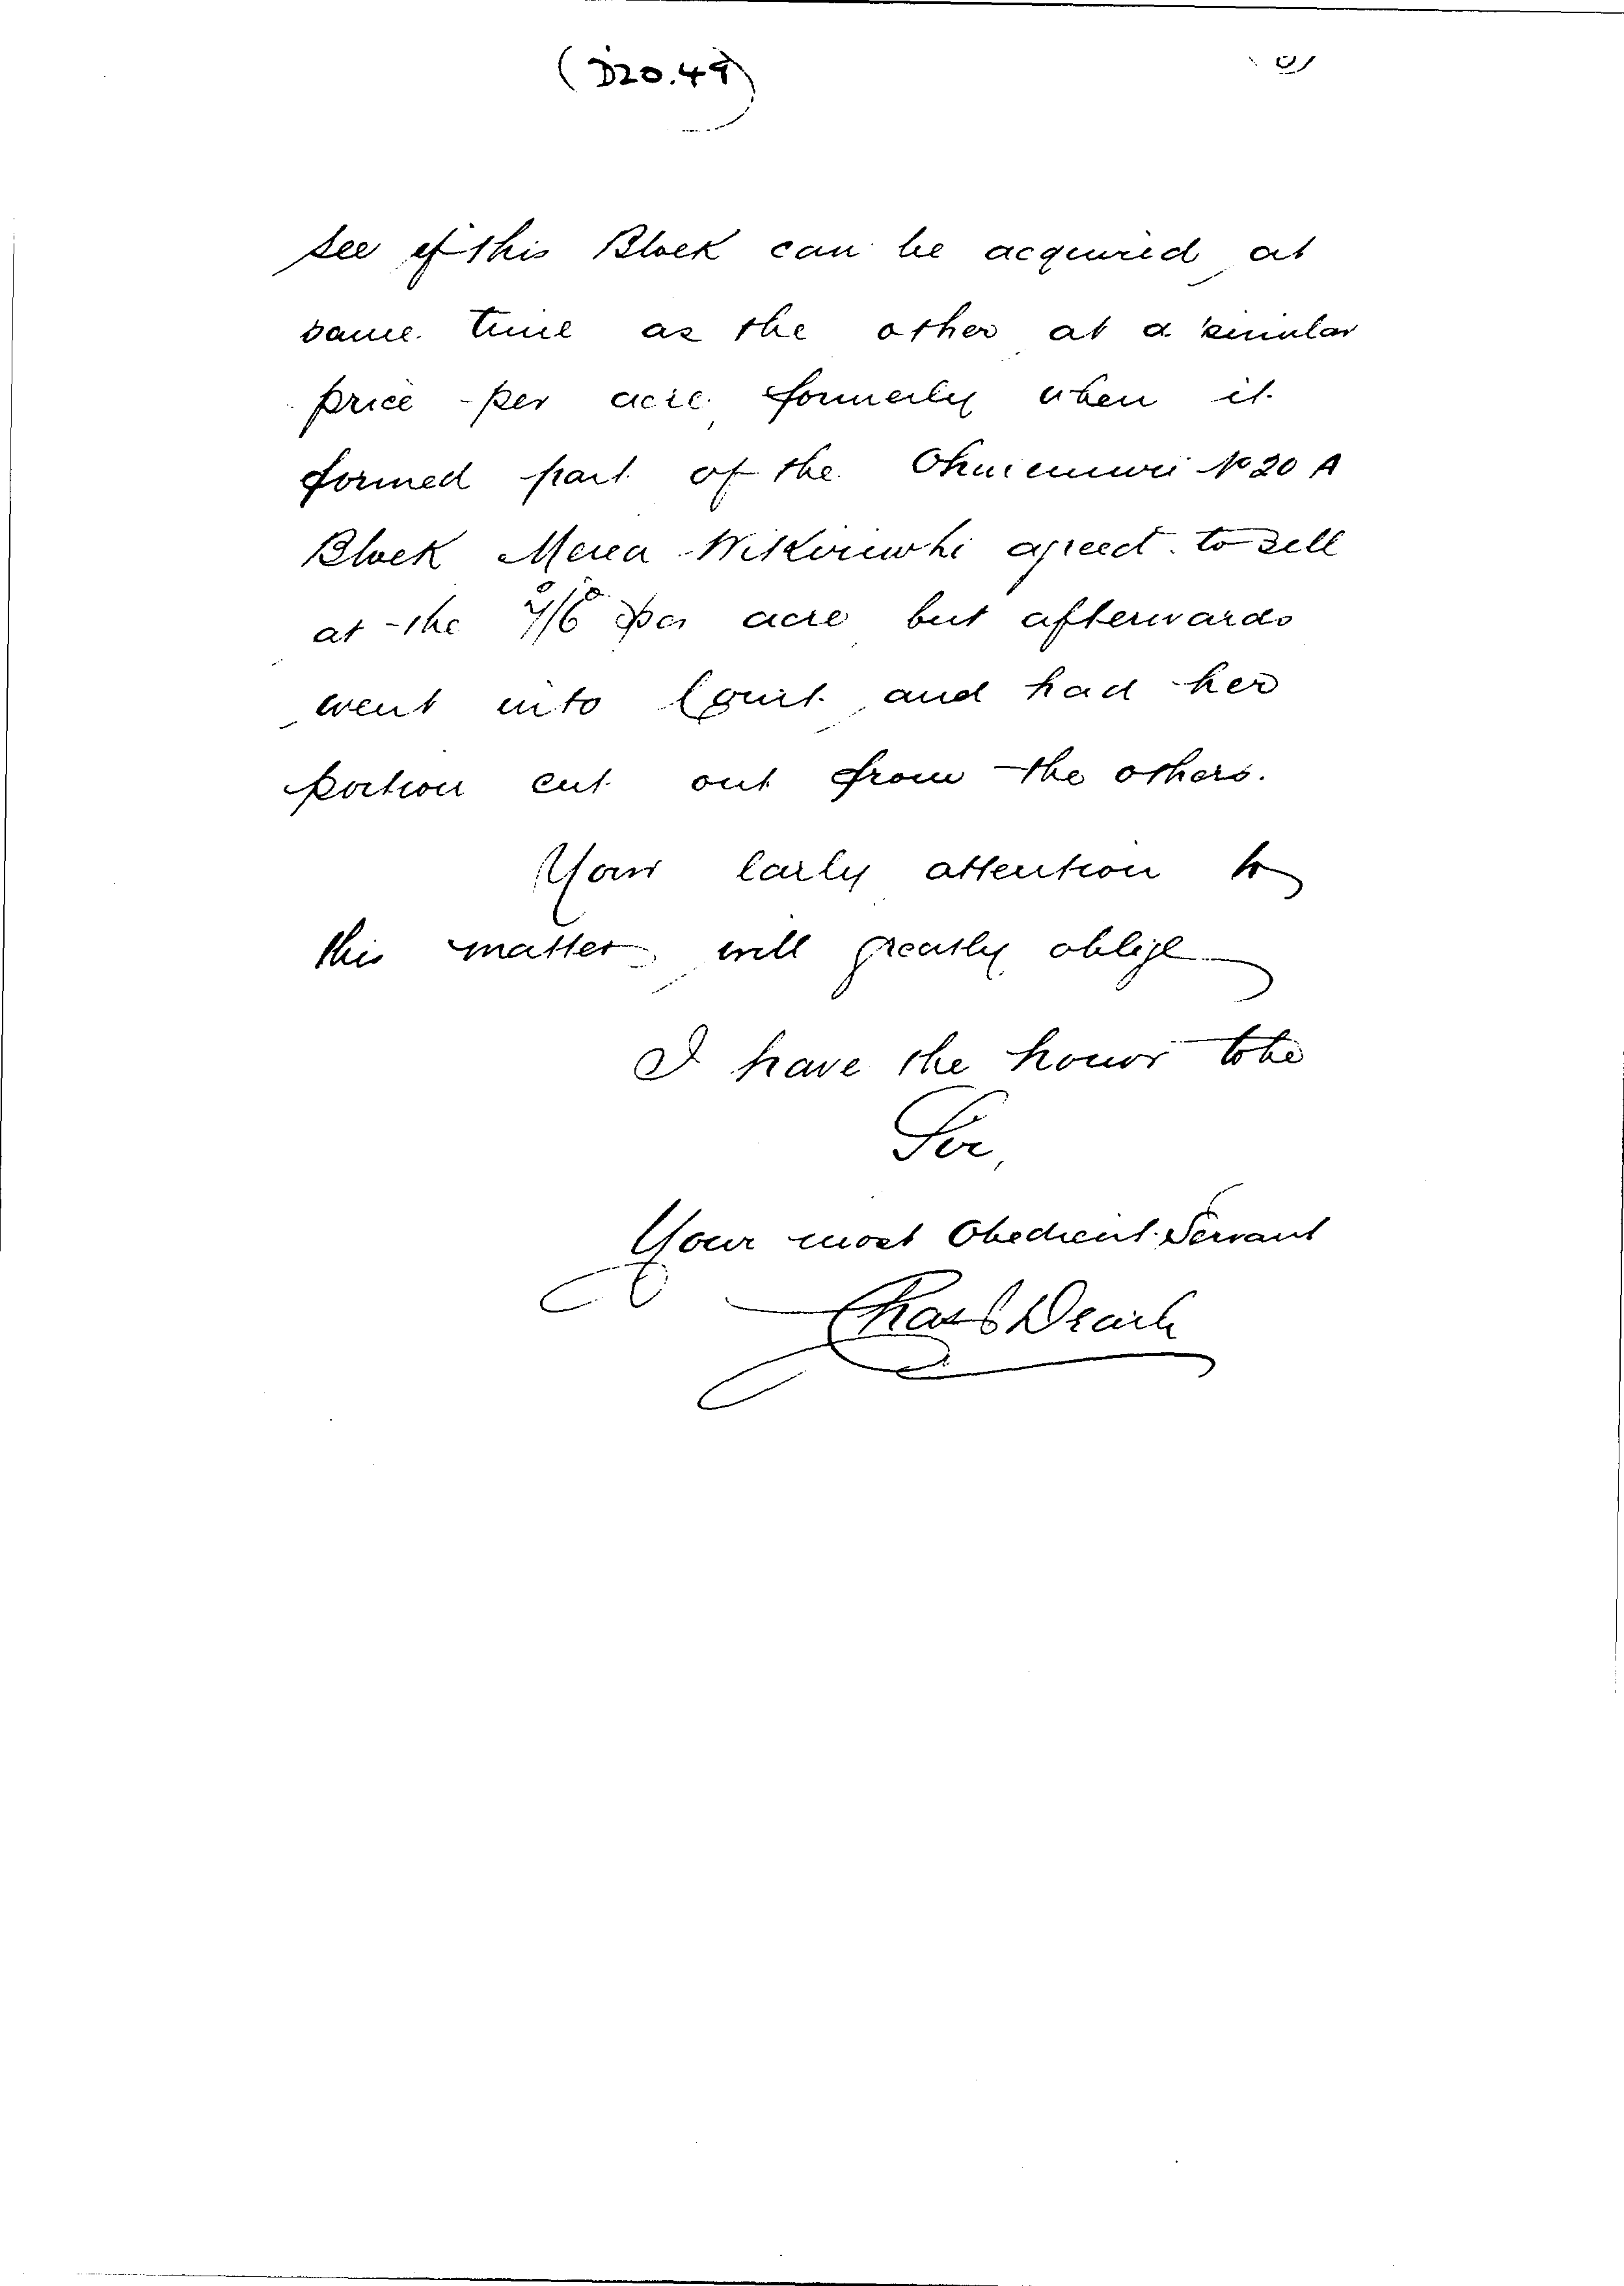 (D20.49)
see if this Block can be acquired at
same time as the other at a similar
price per acre formerly when it
formed part of the No 20 A
Block Merea agreed to sell
at the 7/6 per acre but afterwards
went into Court and had her
portion cut out from the others.
Your early attention to
this matter will greatly oblige
I have the honor to be
Sir,
Your most Obedient Servant
Chas